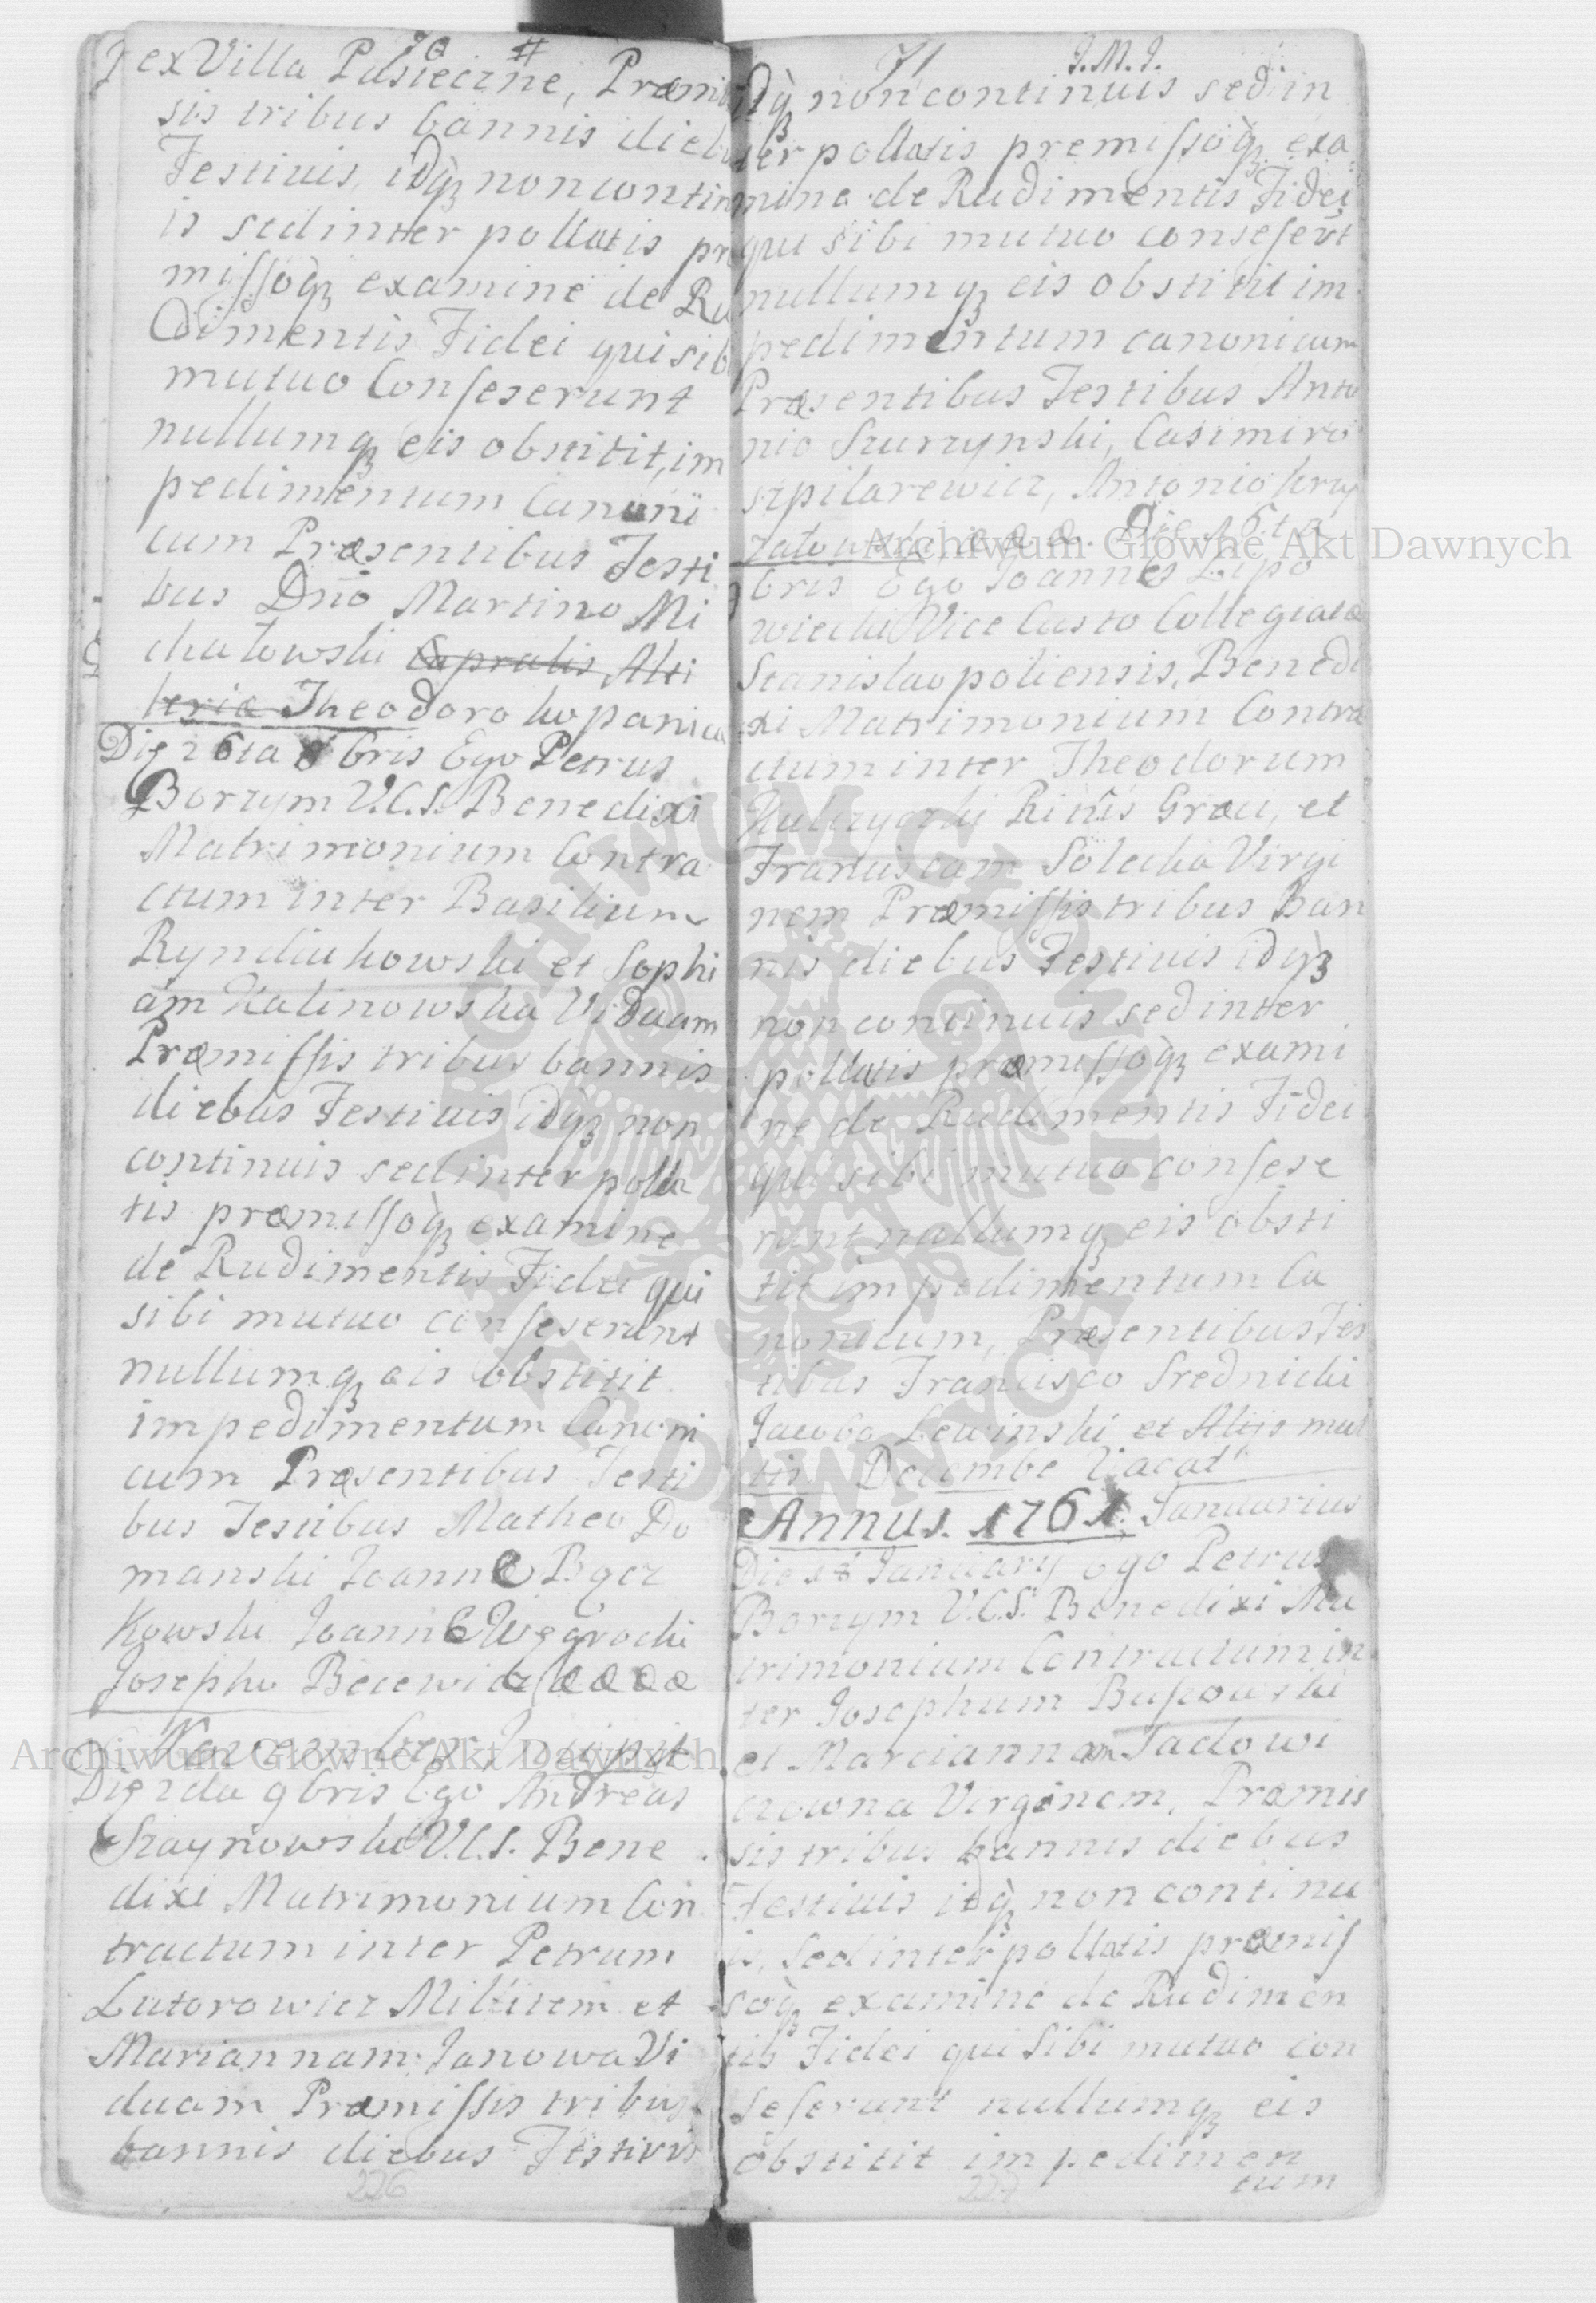 70 #
ex Villa Pasieczne, Præmis
sis tribus bannis diebus
Festiuis, idq́ꝫ non contin
is sed inter pollatis pre
missoq́ꝫ examine de Ru
dimentis Fidei qui sibi
mutuo Conseserunt
nullumqꝫ eis obstitit, im
pedimentum Canoni
cum Præsentibus Testi
bus Dno Martino Mi
chałowski Capralis Alti
leriæ Theodoro kopanica
Die 26ta 8bris Ego Petrus
Borzym V.C.S. Benedixi
Matrimonium Contra
ctum inter Basilium
Ryndziukowski et Sophi
am Kalinowska Viduam
Præmissis tribus bannis
diebus Festiuis idqꝫ non
continuis sed inter polla
tis præmissoq́ꝫ examine
de Rudimentis Fidei qui
sibi mutuo conseserunt
nullumqꝫ eis obstitit
impedimentum Canoni
cum Præsentibus Testi
bus Testibus Matheo Do
manski Joanne Bącz
Kowski Joanne Węgrocki
Josepho Becewicz &&&&
November Incipit
Die 2da 9bris Ego Andreas
Szaynowski V.C.S. Bene
dixi Matrimonium Con
tractum inter Petrum
Lutorowicz Militem et
Mariannam Janowa Vi
duam Præmissis tribus
bannis diebus Festivis
226
71 J.M.J.
idq́ꝫ non continuis sed in
ter pollatis premissoq́ꝫ exa
mine de Rudimentis Fidei
qui sibi mutuo consesert
nullumqꝫ eis obstitit im
pedimentum canonicum
Præsentibus Testibus Anto
nio Szurzynski, Casimiro
szpilarewicz, Antonio krzy
Die 16ta
bris Ego Joannes Lipo
wiecki Vice Custo Collegiatæ
Stanislaopoliensis, Benedi
xi Matrimonium Contra
ctum inter Theodorum
Kulczycki Ritus Græci, et
Franciscam Solecka Virgi
nem Præmissis tribus Ban
nis diebus Festiuis idqꝫ
non continuis sed inter
pollatis præmissoq́ꝫ exami
ne de Rudimentis Fidei
qui sibi mutuo consese
runt nullumqꝫ eis obsti
tit impedimentum Ca
nonicum, Præsentibus Tes
tibus Francisco Srednicki
Jacobo Lewinski et Alijs mul
tis. Decembe Vacat
Annus. 1761. Januarius
Die 18 January ego Petrus
Borzym V.C.S. Benedixi Ma
trimonium Contractum in
ter Josephum
et Mariannam Sadowi
czowna Virginem, Præmis
sis tribus bannis diebus
Festiuis idq́ꝫ non continu
is, sed inter pollatis præmis
soq́ꝫ examine de Rudimen
tis Fidei qui Sibi mutuo con
seserunt nullumqꝫ eis
obstitit impedimen
tum
227
Archiwum Główne Akt Dawnych
Archiwum Główne Akt Dawnych
ARCHIWUM GŁÓWNE AKT DAWNYCH